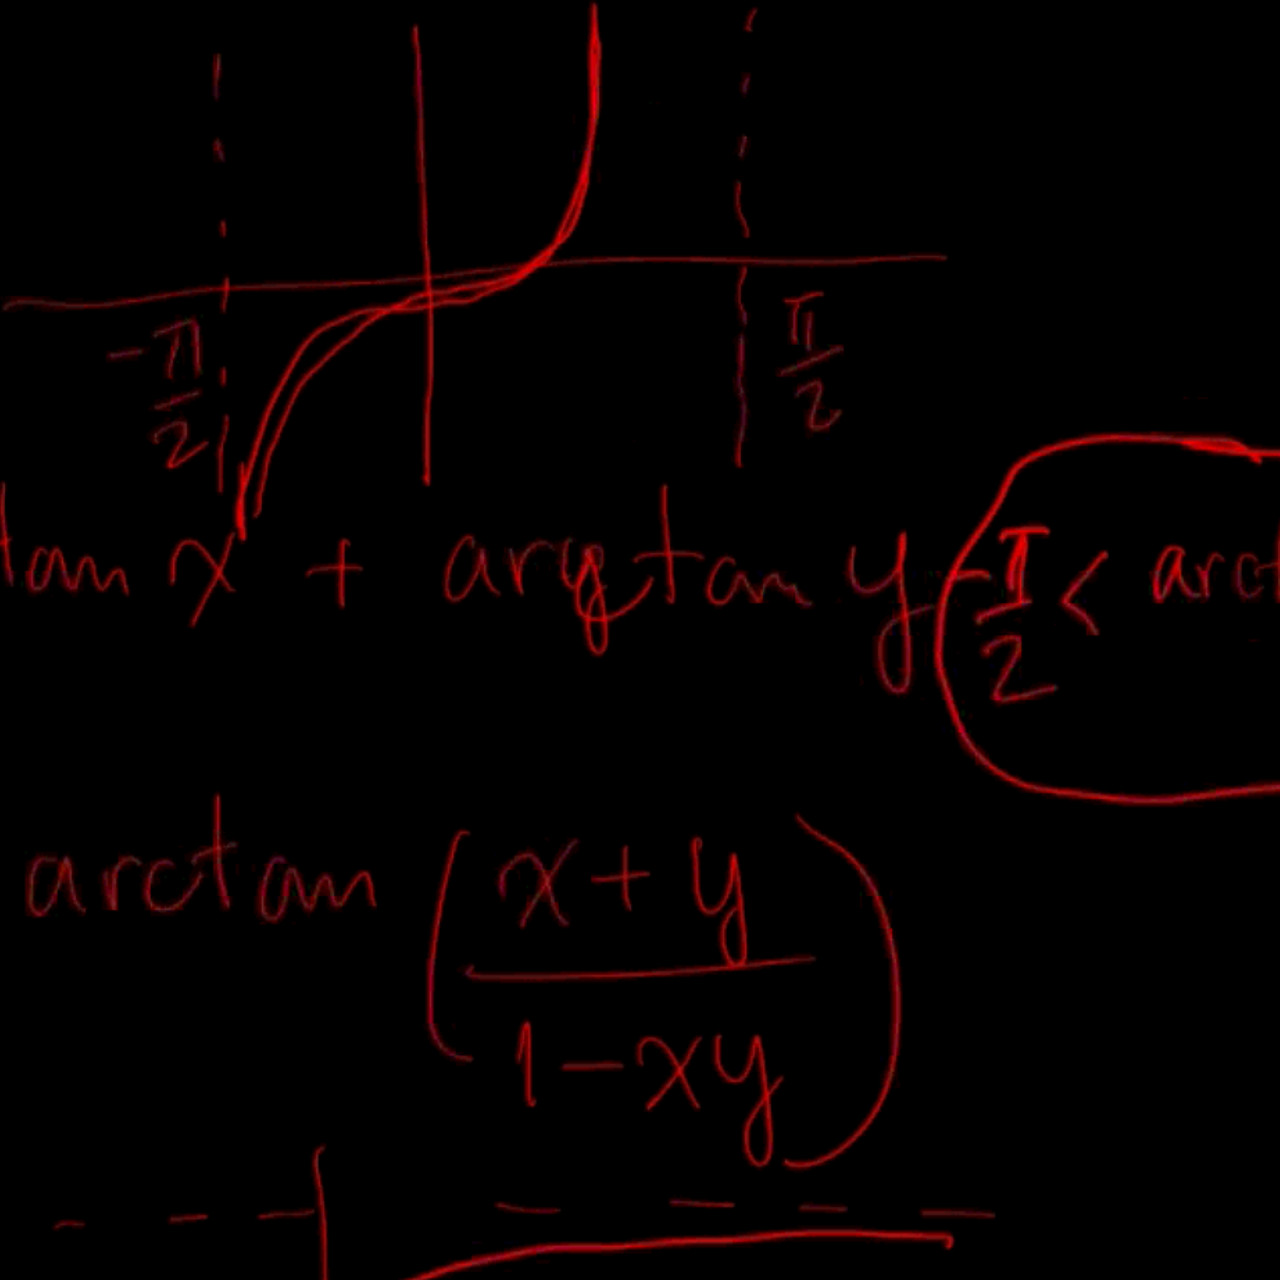 -π/2 π/2
tan x + arctan y -π/2 < arct
arctan ( x+y / 1-xy )